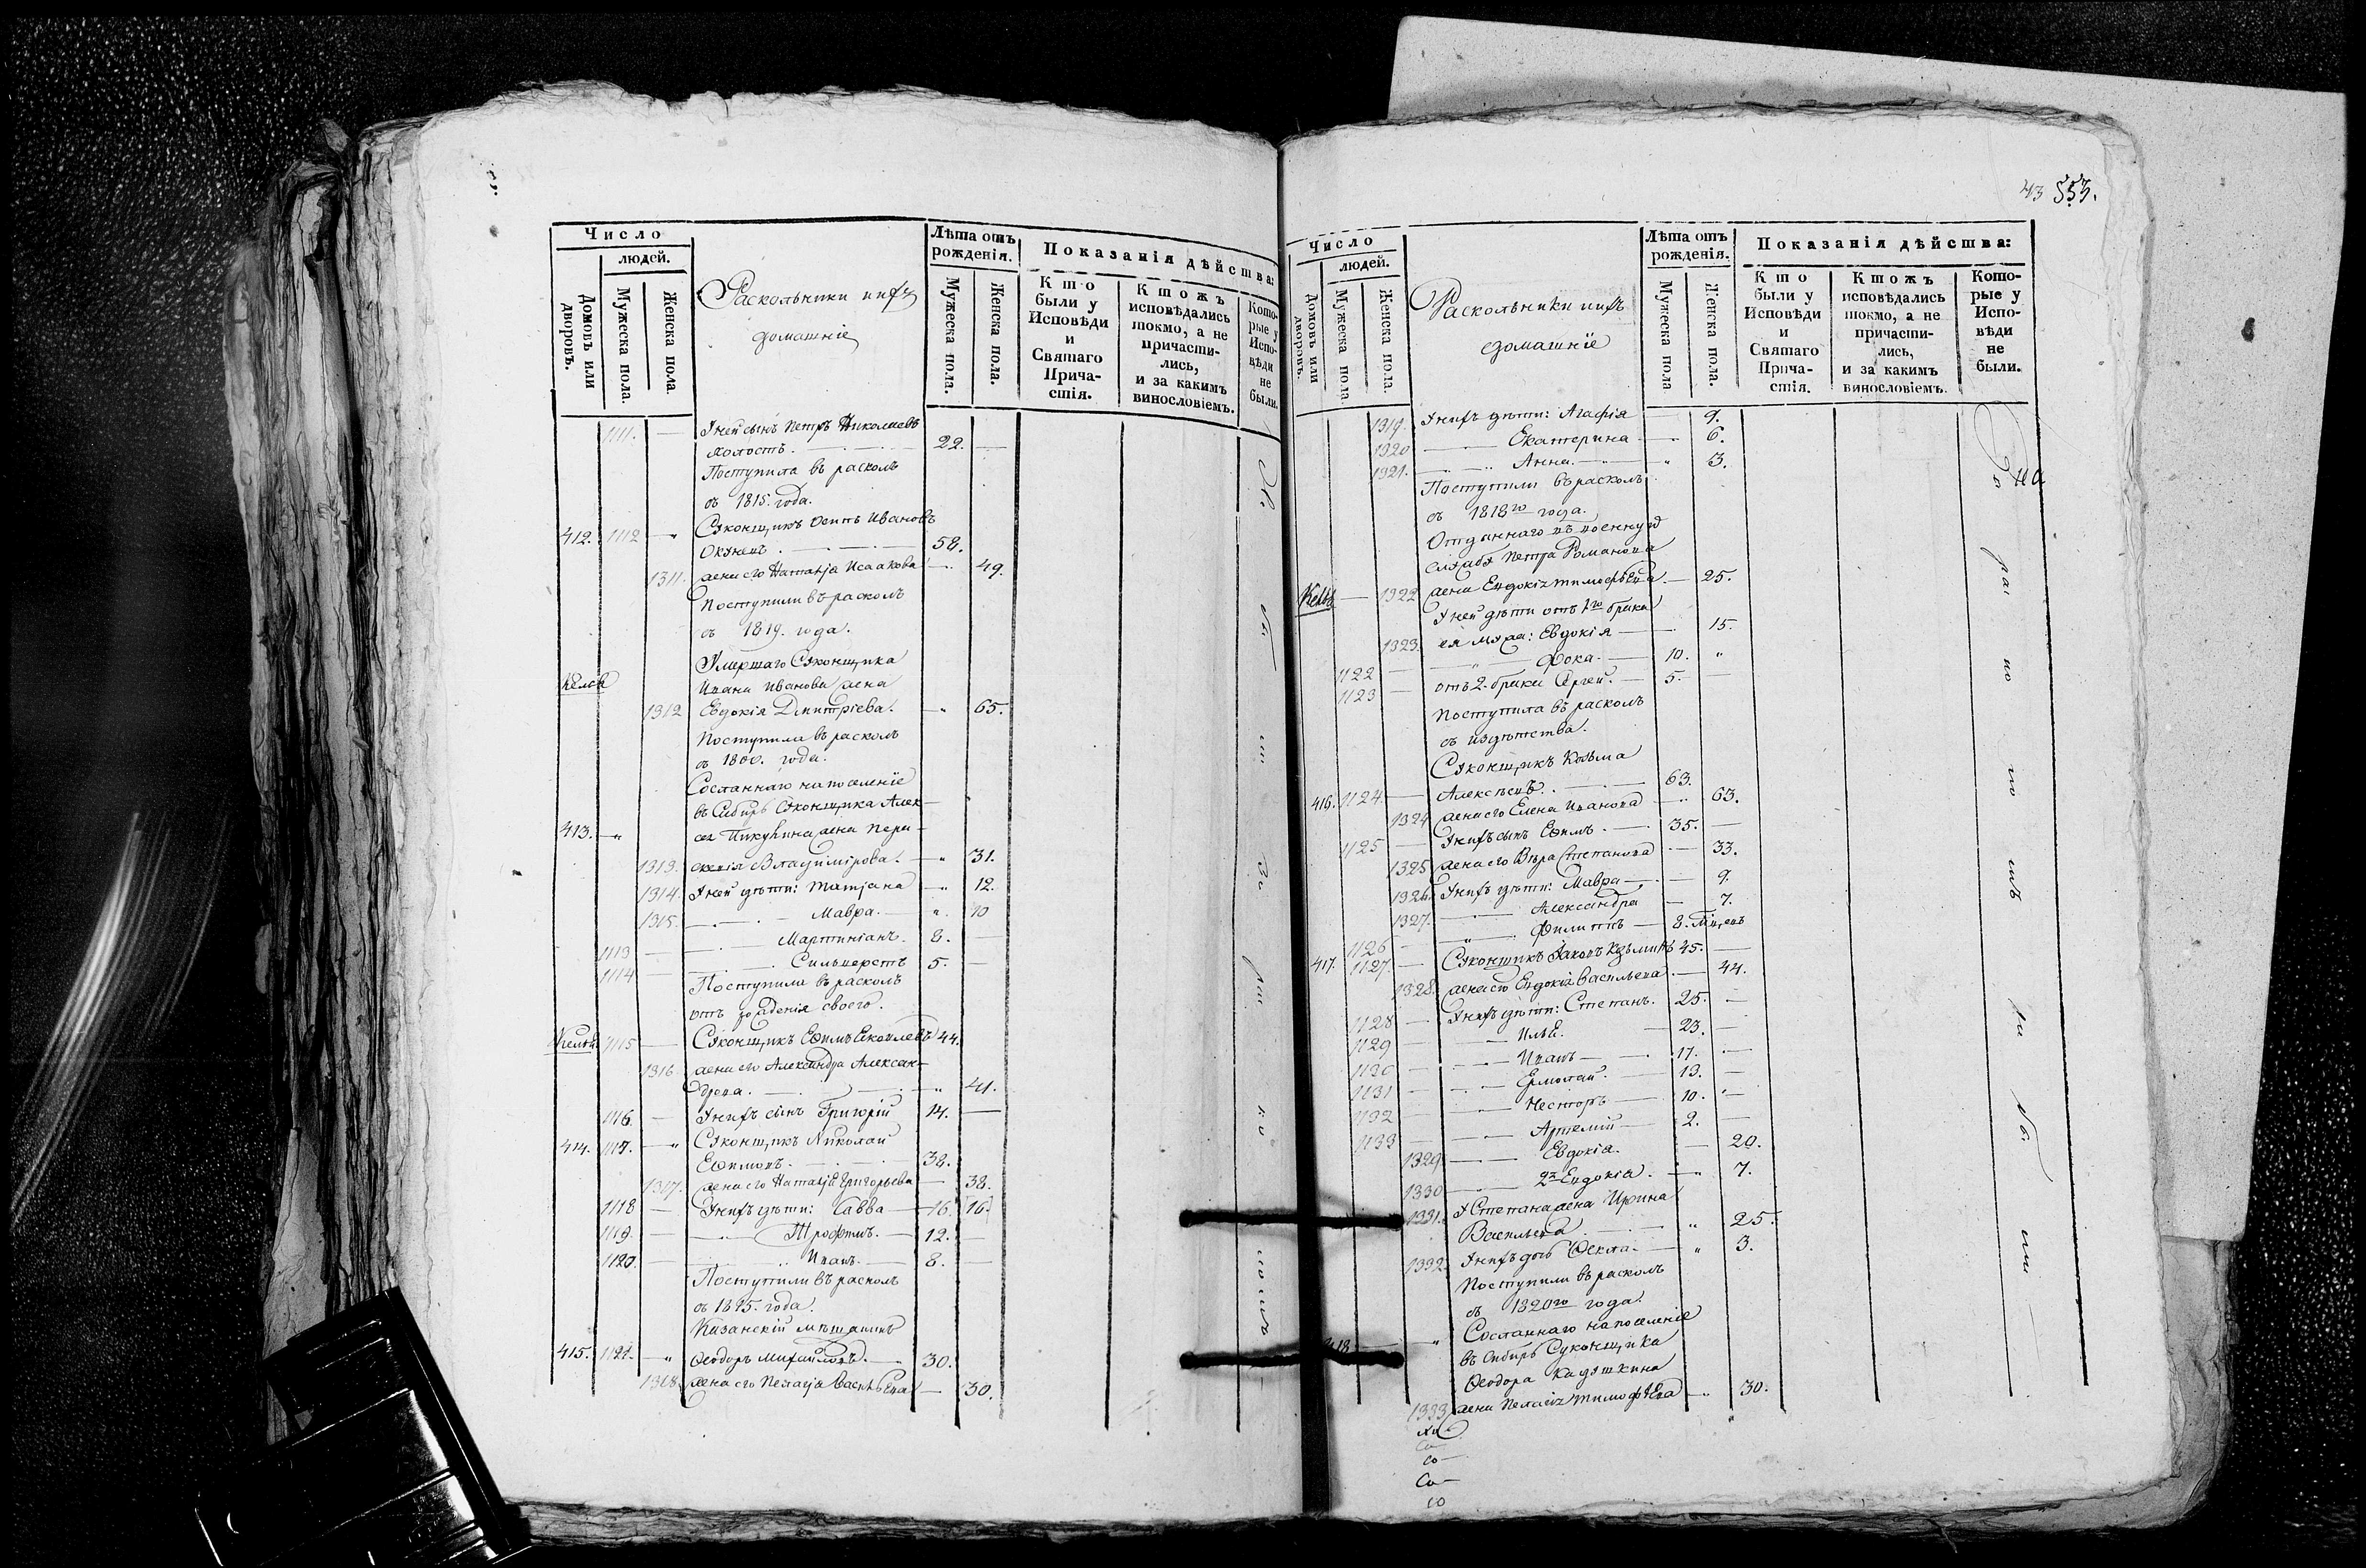 Число
людей.
Домовъ или дворовъ.
Мужеска пола.
Женска пола.
Раскольники ихъ
домашніе
Лѣта отъ рожденія.
Мужеска пола.
Женска пола.
Показанія дѣйства:
Кто были у Исповѣди и Святаго Причастія.
Ктожъ исповѣдались токмо, а не причастились, и за какимъ винословіемъ.
Которые у Исповѣди не были.
1111. — У ней сынъ Петръ Николаевъ
холостъ. — 22. —
Поступила въ расколъ
съ 1815. года.
412. 1112 — Суконщикъ Осипъ Ивановъ
58.
1311. жена его Наталья Исаакова — 49.
Поступили въ расколъ
съ 1819. года.
Умершаго Суконщика
Келья Ивана Иванова жена
1312 Евдокія Димитріева. — 65.
Поступила въ расколъ
съ 1800. года.
Сосланнаго на поселеніе
въ Сибирь Суконщика Алек-
413. — жена
1313. Владимірова. — 31.
1314. У ней дѣти: Татьяна — 12.
1315. — Мавра. — 10
1113 — Мартиніанъ. 8. —
1114 — Сильверстъ 5. —
Поступили въ расколъ
отъ рожденія своего.
Келья. 1115 — Суконщикъ Ефимъ 44.
1316 жена его Александра Алексан-
дрова. — 41.
1116. — У нихъ сынъ Григорій 14. —
414. 1117. — Суконщикъ Николай
Ефимовъ. — 38.
1317. жена его Наталья Григорьева — 38.
1118 — У нихъ дѣти: Савва — 16. 16.
1119. — Трофимъ. — 12. —
1120. — Иванъ. — 8. —
Поступили въ расколъ
съ 1815. года.
Казанскій мѣщанинъ
415. 1121. — Ѳеодоръ Михайловъ. — 30.
1318. жена его Пелагія Васильева — 30.
43 553.
Число
людей.
Домовъ или дворовъ.
Мужеска пола
Женска пола.
Раскольники ихъ
домашніе
Лѣта отъ рожденія.
Мужеска пола
Женска пола.
Показанія дѣйства:
Кто были у Исповѣди и Святаго Причастія.
Ктожъ исповѣдались токмо, а не причастились, и за какимъ винословіемъ.
Которые у Исповѣди не были.
1319. У нихъ дѣти: Агафія — 9.
1320 — Екатерина — 6.
1321. — Анна. — 3.
Поступили въ расколъ
съ 1818го года.
Отданнаго въ военную
службу Петра Романова
Келья — 1322 жена Евдокія Тимофѣева. — 25.
У ней дѣти отъ 1го брака
1323. ея мужа: Евдокія — 15.
1122 — Фока. — 10. "
1123 — отъ 2. брака Сергей. — 5. —
Поступила въ расколъ
съ издѣтства.
Суконщикъ Козьма
416. 1124. — Алексѣевъ. — 63.
1324 жена его Елена Иванова — 63.
1125 — У нихъ сынъ Ефимъ. — 35. —
1325 жена его Вѣра Степанова — 33.
1326. У нихъ дѣти: Мавра — 9.
1327. — Александра — 7.
1126 — Филиппъ — 8. мѣсецъ
417. 1127. — Суконщикъ Яковъ Кузьминъ 45. —
1328. жена его Евдокія Васильева — 44.
1128 — У нихъ дѣти: Степанъ. 25. —
1129 — Илья. — 23. —
1130 — Иванъ — 17. —
1131 — Ермолай. — 13. —
1132 — Несторъ — 10. —
1133 — Артемій — 2. —
1329. — Евдокія. — 20.
1330 — 2я Евдокія. — 7.
1331. У Степана жена Ирина
Васильева — 25.
1332. У нихъ дочь Ѳекла. — 3.
Поступили въ расколъ
съ 1820го года.
Сосланнаго на поселеніе
418 въ Сибирь Суконщика
Ѳеодора
1333 жена Пелагія Тимофѣева — 30.